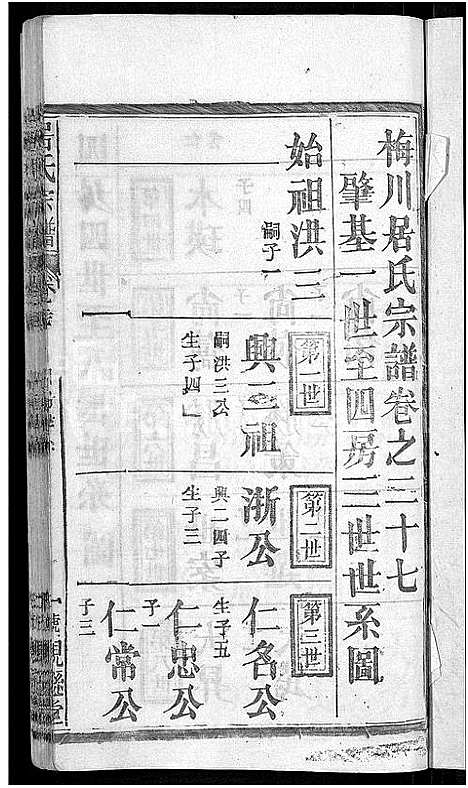 梅川居氏宗譜卷之二十七
肇基一世至四房三世世系圖
始祖洪三
嗣子一
第一世
興二祖
嗣洪三公
生子四
第二世
浙公
興二四子
生子三
第三世
仁名公
生子五
仁忠公
子一
仁常公
子三
居氏宗譜